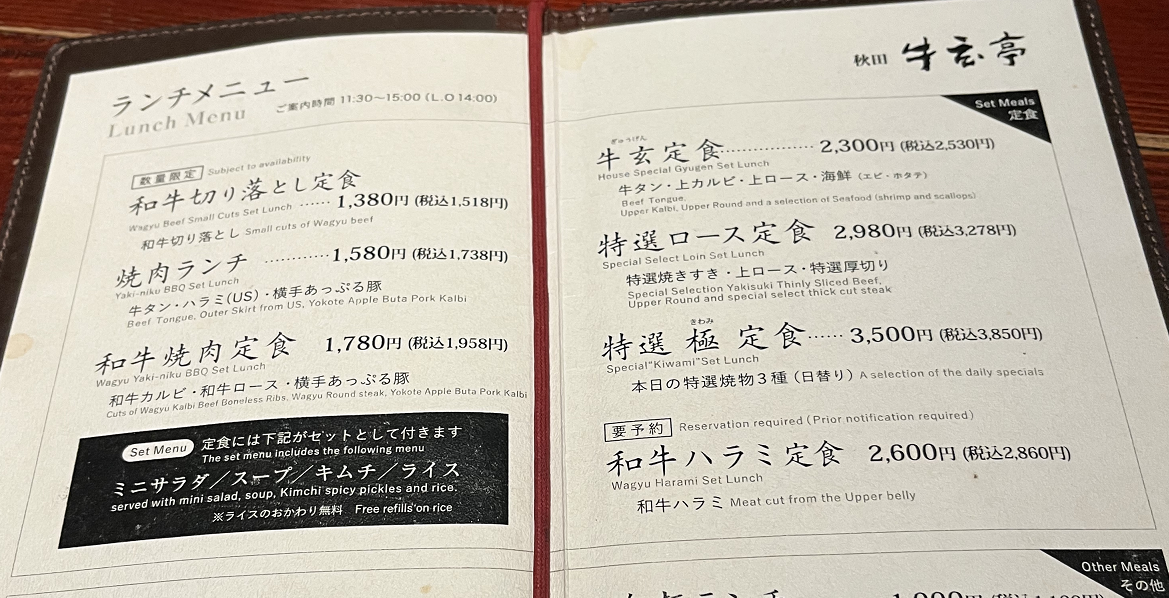 ランチメニュー
ご案内時間 11:30〜15:00（L.O 14:00）
Lunch Menu
数量限定 Subject to availability
和牛切り落とし定食
Wagyu Beef Small Cuts Set Lunch ‥‥‥ 1,380円 (税込1,518円)
和牛切り落とし Small cuts of Wagyu beef
焼肉ランチ ‥‥‥‥‥‥ 1,580円 (税込1,738円)
Yaki-niku BBQ Set Lunch
牛タン・ハラミ(US)・横手あっぷる豚
Beef Tongue, Outer Skirt from US, Yokote Apple Buta Pork Kalbi
和牛焼肉定食 1,780円 (税込1,958円)
Wagyu Yaki-niku BBQ Set Lunch
和牛カルビ・和牛ロース・横手あっぷる豚
Cuts of Wagyu Kalbi Beef Boneless Ribs, Wagyu Round steak, Yokote Apple Buta Pork Kalbi
Set Menu 定食には下記がセットとして付きます
The set menu includes the following menu
ミニサラダ／スープ／キムチ／ライス
served with mini salad, soup, Kimchi spicy pickles and rice.
※ライスのおかわり無料 Free refills on rice
秋田 牛玄亭
Set Meals
定食
ぎゅうげん
牛玄定食‥‥‥‥‥‥‥‥ 2,300円 (税込2,530円)
House Special Gyugen Set Lunch
牛タン・上カルビ・上ロース・海鮮（エビ・ホタテ）
Beef Tongue,
Upper Kalbi, Upper Round and a selection of Seafood (shrimp and scallops)
特選ロース定食 2,980円 (税込3,278円)
Special Select Loin Set Lunch
特選焼きすき・上ロース・特選厚切り
Special Selection Yakisuki Thinly Sliced Beef,
Upper Round and special select thick cut steak
きわみ
特選 極 定食‥‥‥ 3,500円 (税込3,850円)
Special"Kiwami"Set Lunch
本日の特選焼物3種（日替り）A selection of the daily specials
要予約 Reservation required（Prior notification required）
和牛ハラミ定食 2,600円 (税込2,860円)
Wagyu Harami Set Lunch
和牛ハラミ Meat cut from the Upper belly
Other Meals
その他